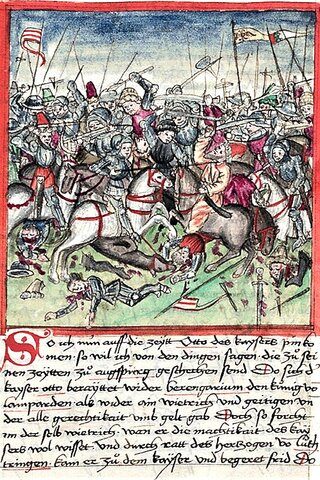 So ich nun auff die zeytt Otto des kaysers pin ko
men so wil ich von den dingen sagen die zu sei
nen zeytten zu augsspurg geschechen send Do sich d
kayser otto berayttet wider berengarium den künig vo
lamparden als wider ain wietrich und geitigen un
der alle gerechtikait umb gelt gab Doch so forcht
im der selb wietrich wan er die machtikait des kay
sers wol wisset und durch ratt des hertzogen vo luth
tringen kam er zu dem kayser und begeret frid Do